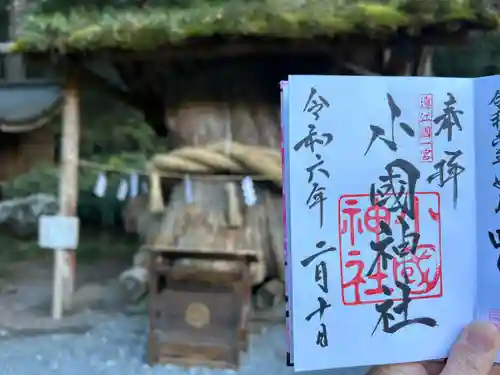 奉拝
遠江國一宮
小國神社
小國神社
令和六年二月十日